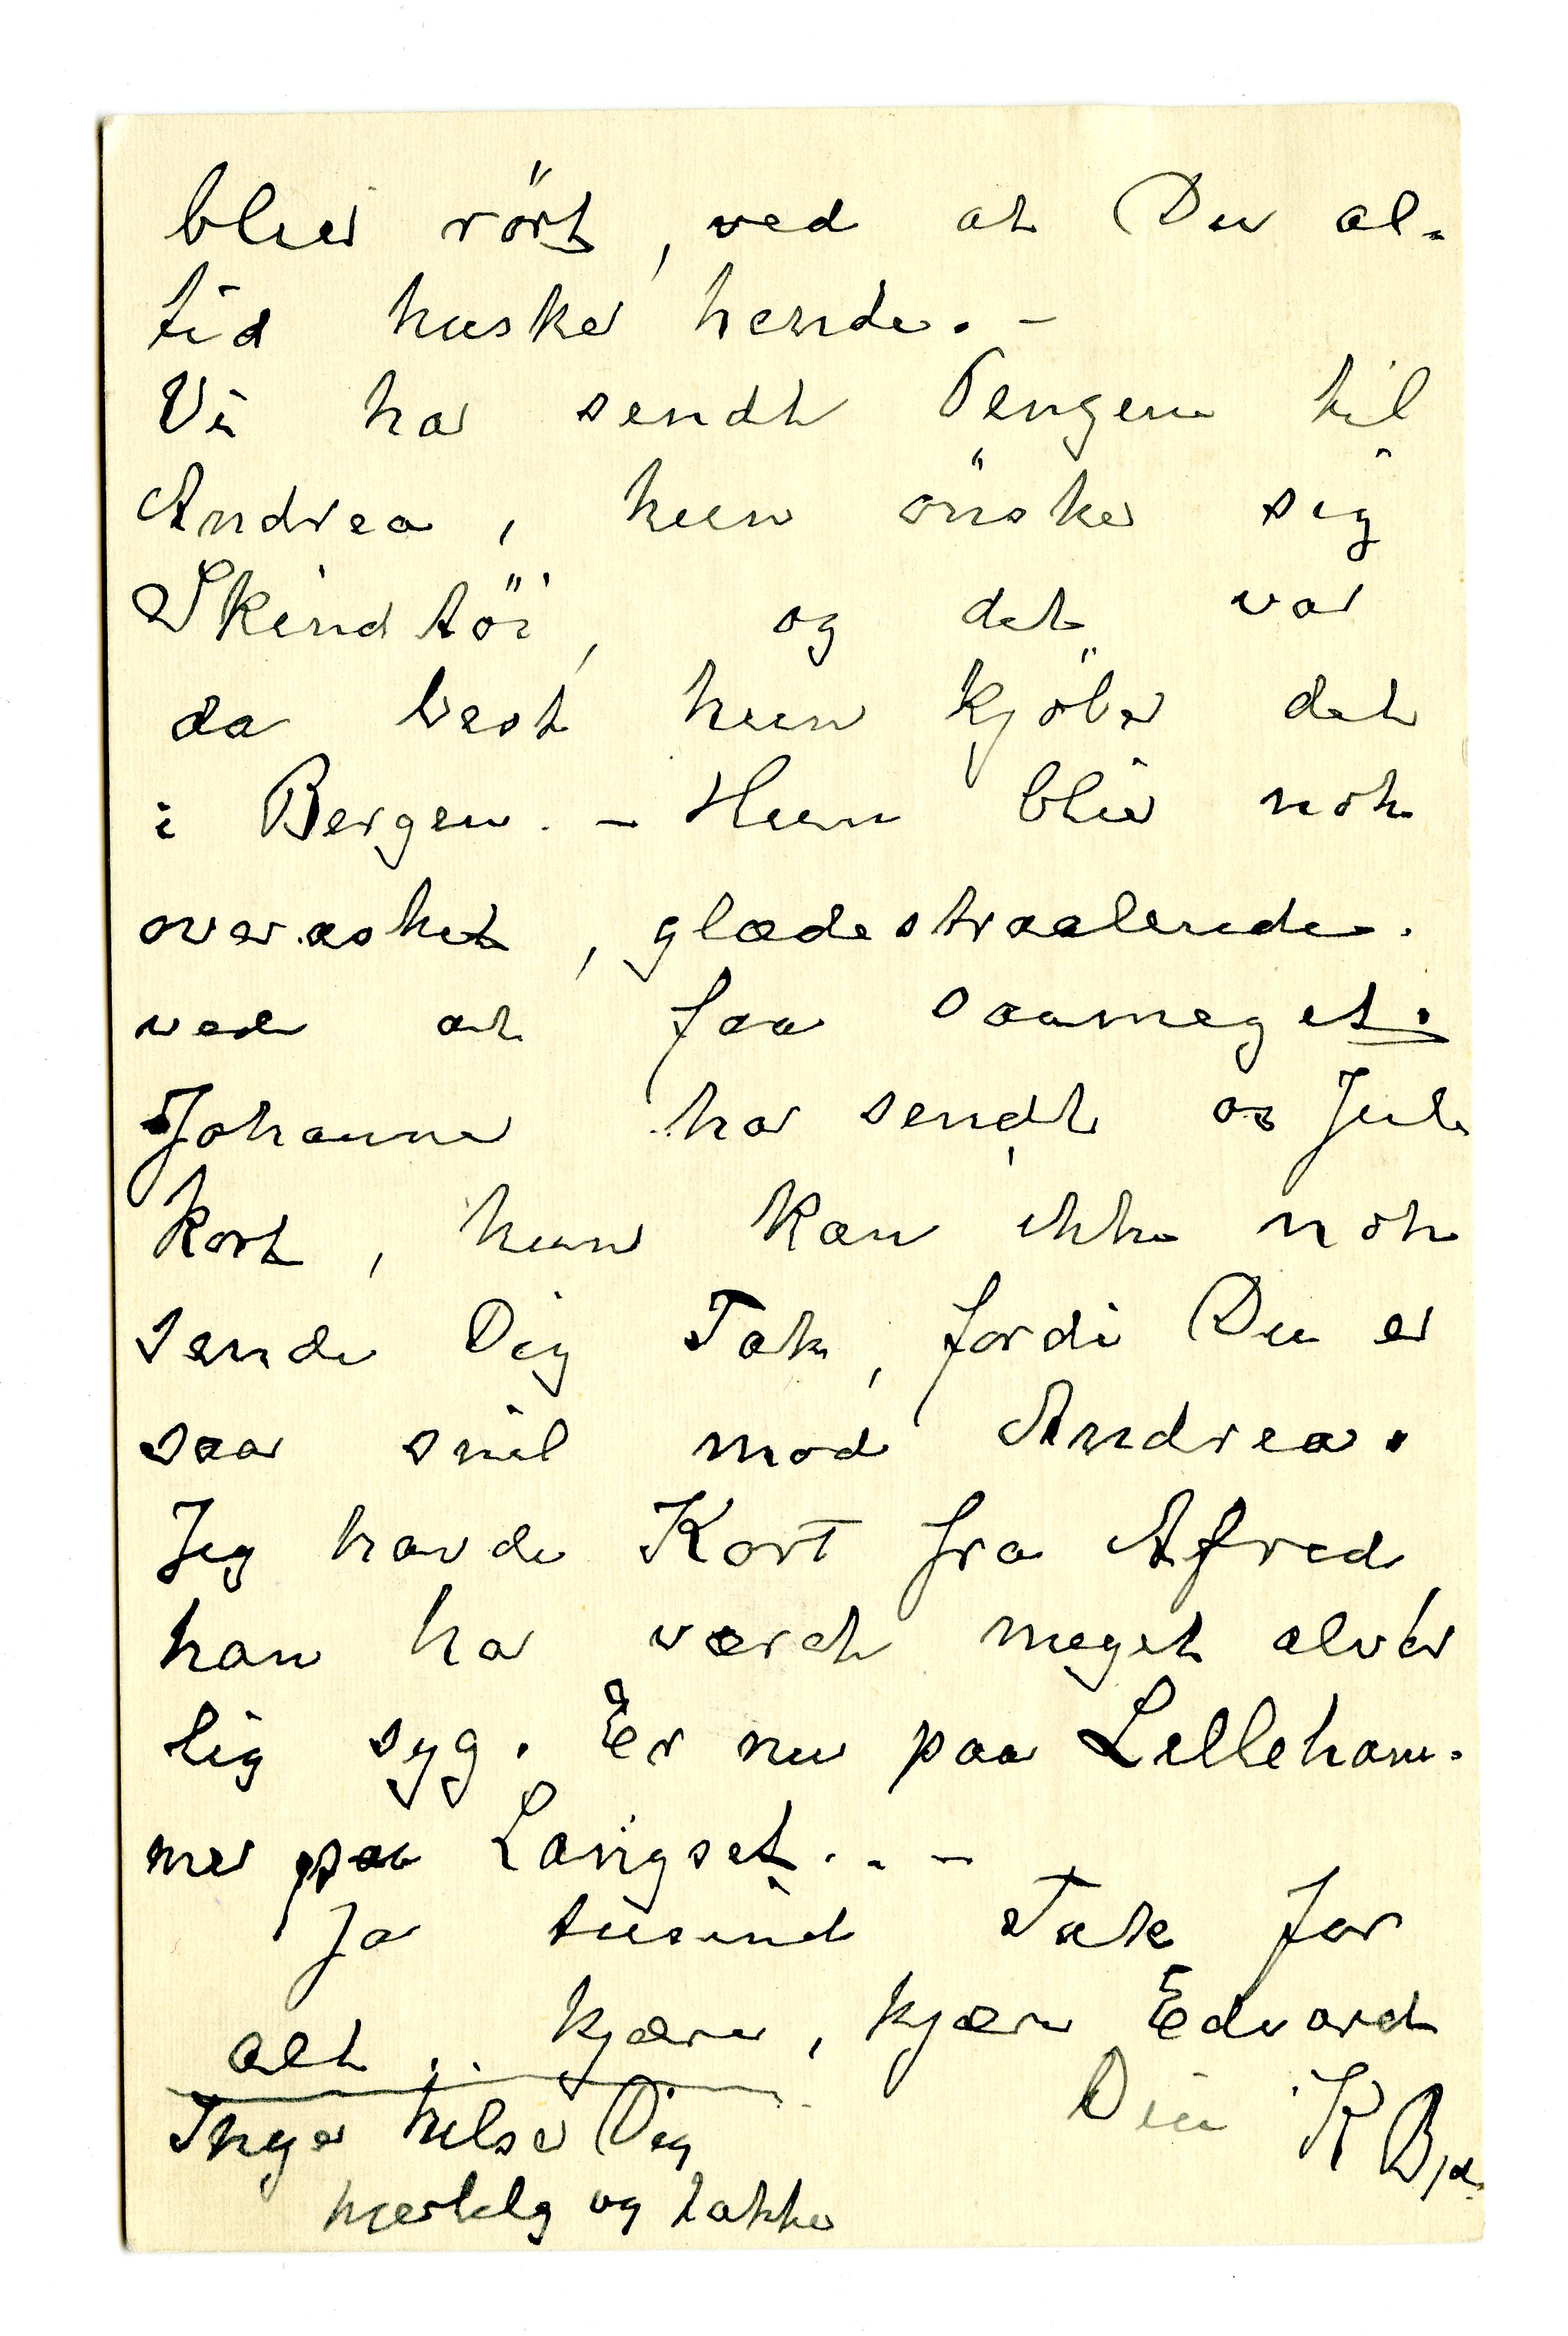 bliver rört, ved at Du al-
tid husker hende. –
Vi har sendt Pengene til
Andrea, hun önsker sig
Skindtöi, og det var
da best hun kjöber det
i Bergen. – Hun bliver nok
overasket, glædestraalende.
ved at faa saameget.
Johanne har sendt os Jule
kort, hun kan ikke nok
sende Dig Tak, fordi Du er
saa snil mod Andrea.
Jeg havde Kort fra Alfred,
han har værdt meget alvår
lig syg. Er nu paa Lilleham-
mer paa Langset. . –
Ja tusind Tak for
alt . . kjære, kjære Edvard
Din K Bj.
Inger hilser Dig
hjertelig og takker